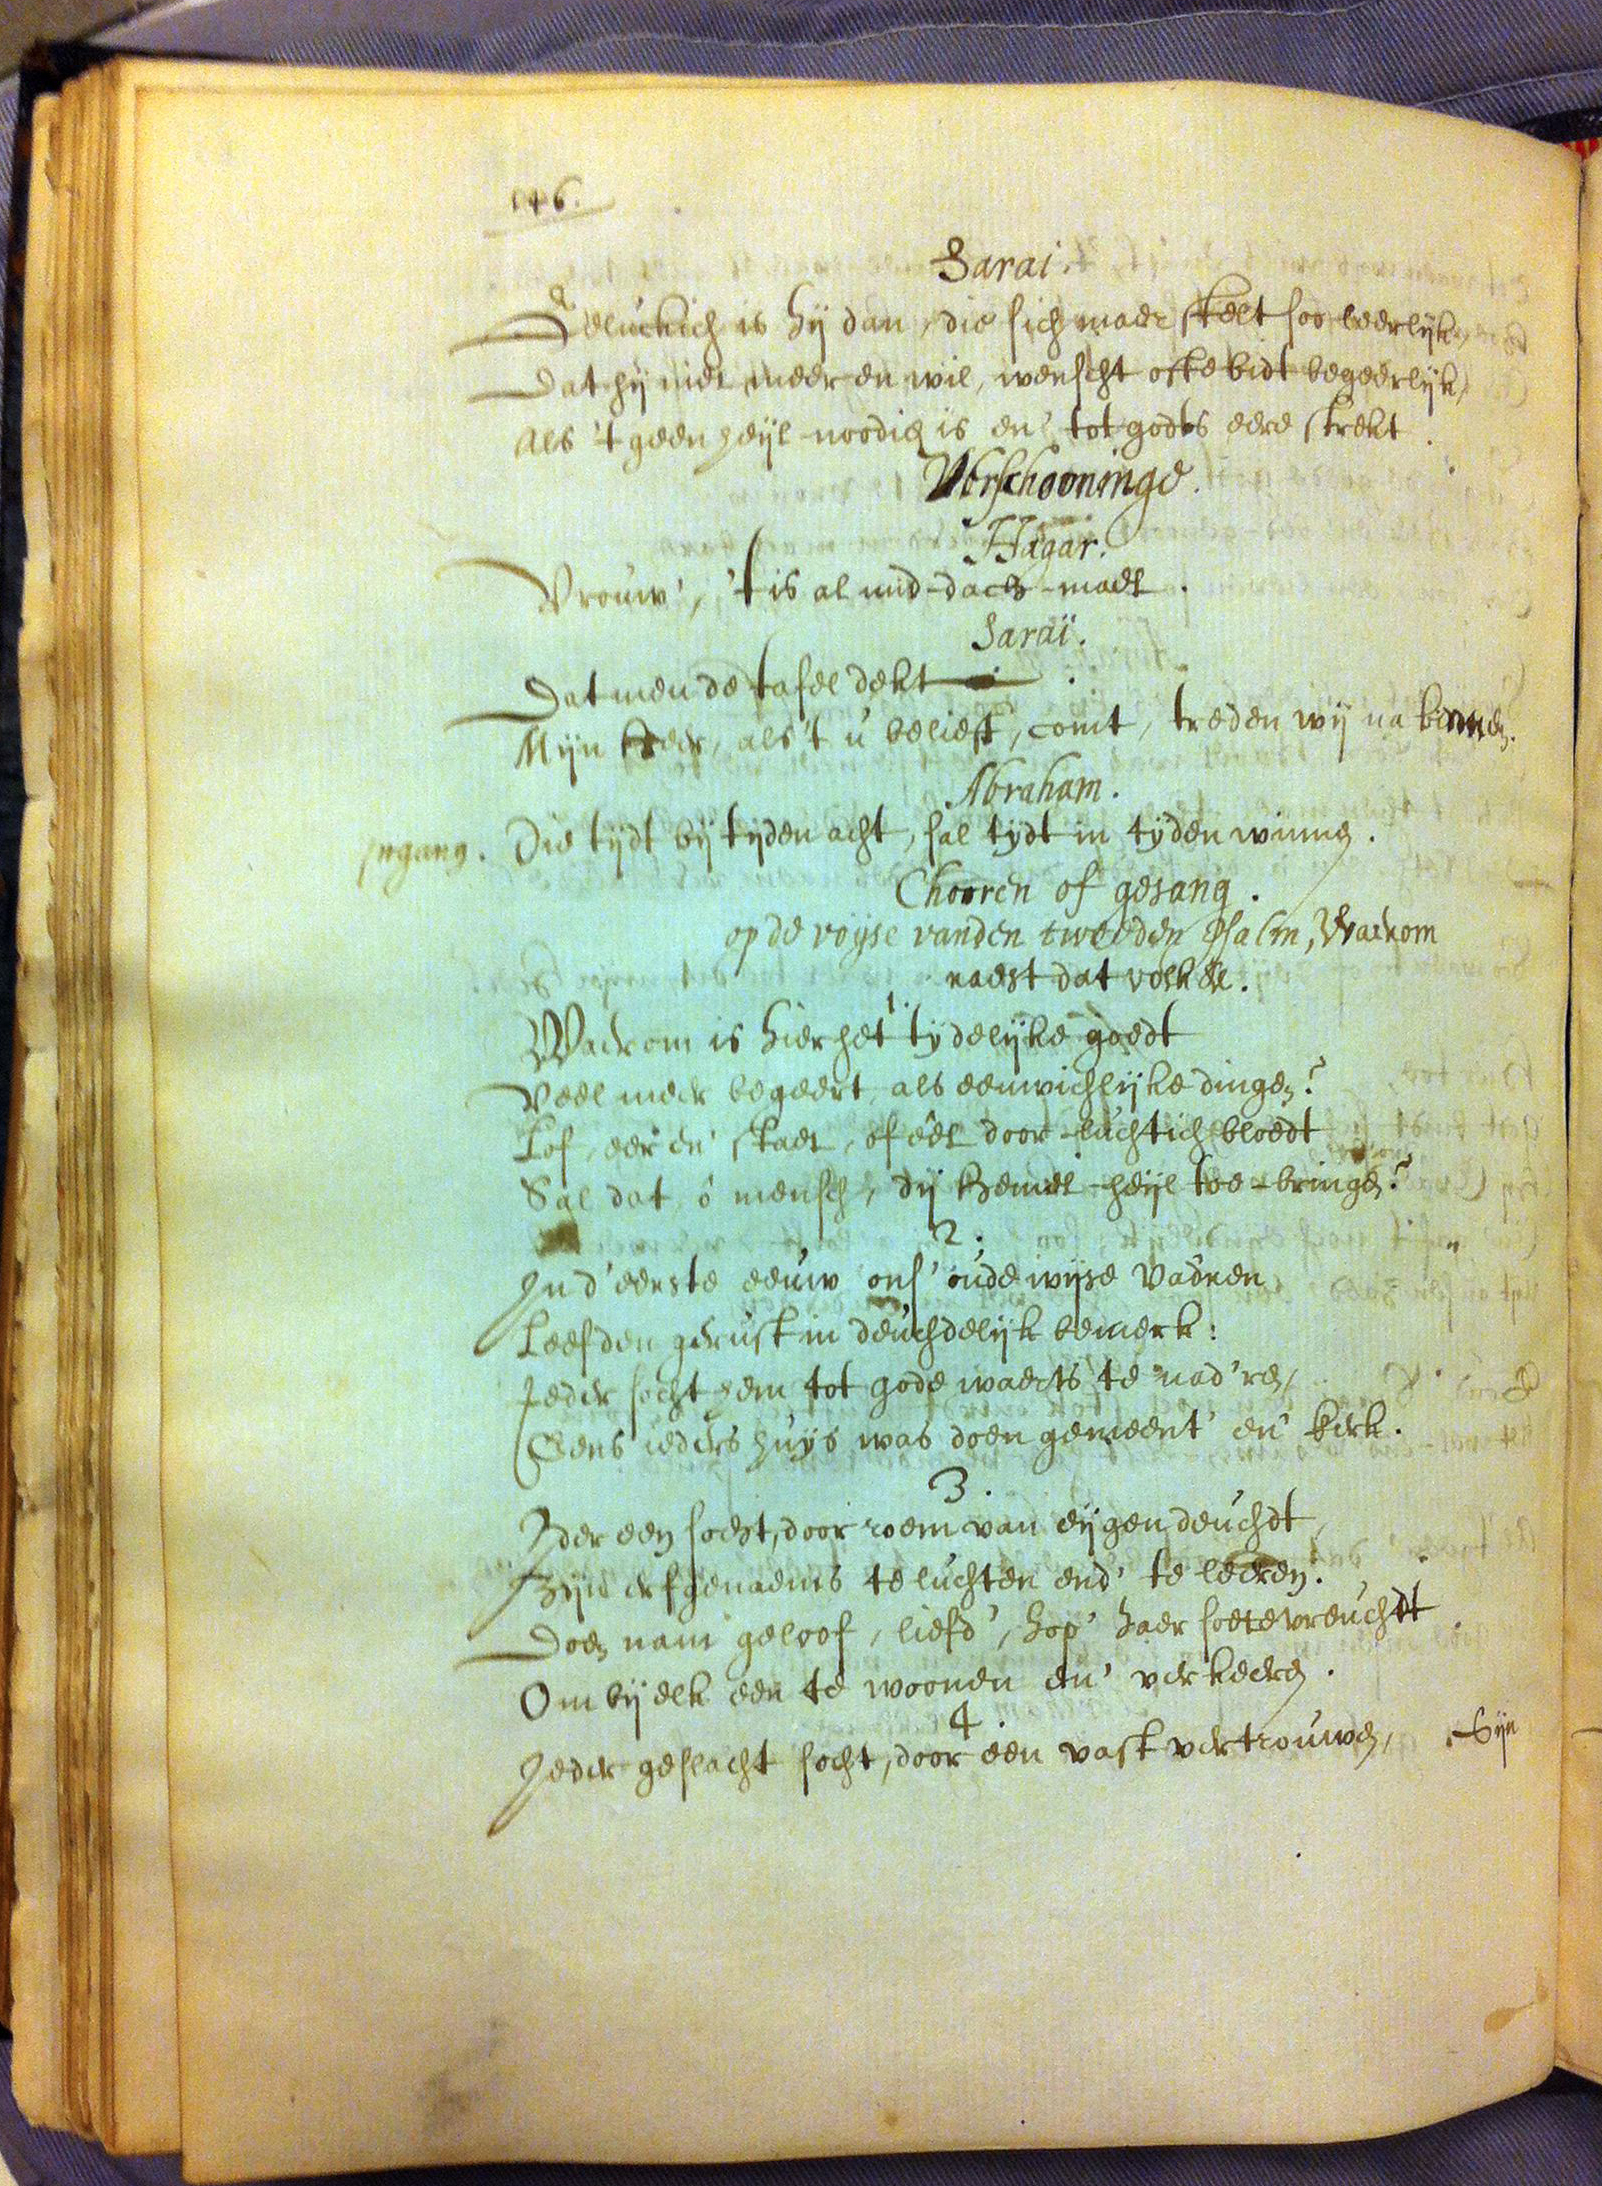 146.
Sarai.
Geluckich is hij dan, die sich maer stelt soo leerlijk,
Dat hij niet meer en wil, wenscht ofte bidt begeerlijk,
Als 't geen heijl-noodich is en' tot godts eere strekt.
Verschooninge.
Hagar.
Vrouw', 't is al mid-dach-mael.
Saraï.
Dat men de tafel dekt.
Mijn Heer, als 't u belieft, comt, treden wij na binnen.
Abraham.
Ingang. Die tijdt bij tijden acht, sal tijdt in tijden winnen.
Chooren of gesang.
op de voijse vanden tweeden Psalm, Waerom
raest dat volk &c.
1.
Waerom is hier het tijdelijke goedt
Veel meer begeert, als eeuwichlijke dingen?
Lof, eer en' staet, of eêl door-luchtich bloedt
Sal dat, ó mensch, dij hemel-heijl toe-bringen?
2.
In d'eerste eeuw ons' oude wijse Vadren
Leefden gerust in deuchdelijk bemerk:
Ieder socht hem tot gode waerts te nad'ren,
Eens ieders huijs was doen gemeent' en' kerk.
3.
Ider een socht, door roem van eijgen deuchdt,
Zijn erfgenaems te luchten end' te leeren:
Doen nam geloof, liefd', hop' haer soete vreuchdt
Om bij elk een te woonen en' verkeeren.
4.
Ieder geslacht socht, door een vast vertrouwen,
Sijn